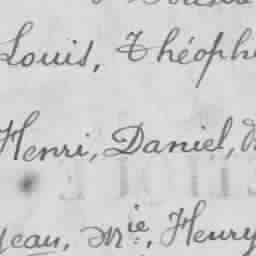 Louis, Théoph
Henri, Daniel,
Jean, Mie, Henry